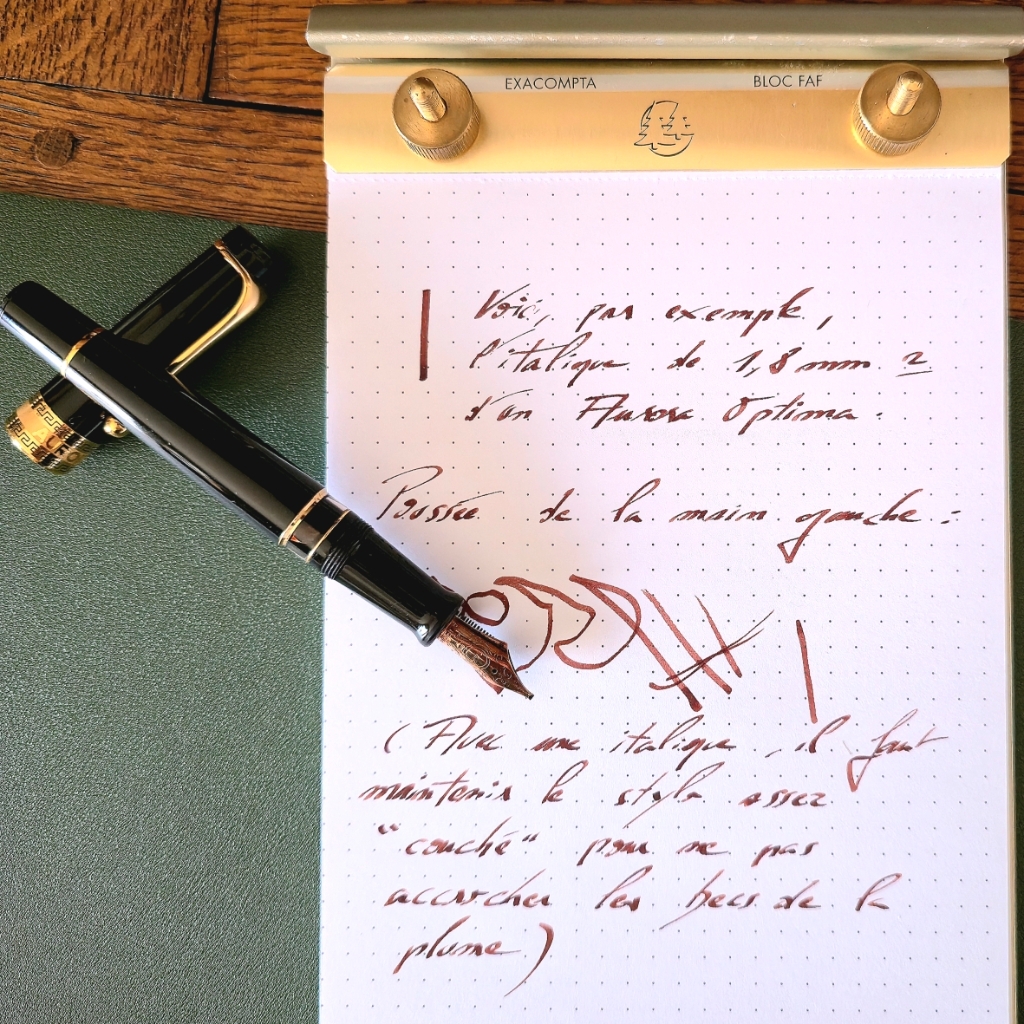 EXACOMPTA BLOC FAF
Voici, par exemple,
l'italique de 1,8 mm
d'un Aurora Optima.
Poussée de la main gauche :
(Avec une italique, il faut
maintenir le stylo assez
"couché" pour ne pas
accrocher les becs de la
plume)